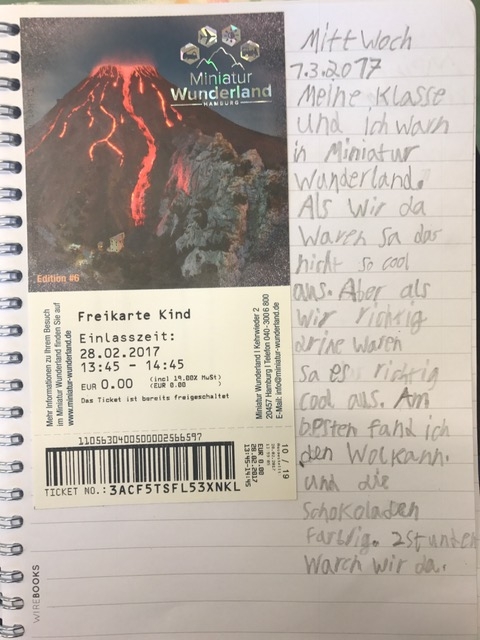 Miniatur
Wunderland
HAMBURG
Edition #6
Mehr Informationen zu Ihrem Besuch
im Miniatur Wunderland finden Sie auf
www.miniatur-wunderland.de
Freikarte Kind
Einlasszeit:
28.02.2017
13:45 - 14:45
EUR 0.00
(incl.19.00% MwSt)
(EUR 0.00 )
Das Ticket ist bereits freigeschaltet
Miniatur Wunderland | Kehrwieder 2
20457 Hamburg | Telefon 040-300 6 800
E-Mail: info@miniatur-wunderland.de
1105630400500002566597
TICKET NO.: 3ACF5TSFL53XNKL
10 / 19
EUR 0.00
28.02.2017
13:45-14:45
WIREBOOKS
Mittwoch
7.3.2017
Meine Klasse
und ich warn
in Miniatur
Wunderland.
Als wir da
waren sa das
nicht so cool
aus. Aber als
wir richtig
drine waren
sa es richtig
cool aus. Am
besten fand ich
den Wolkann.
und die
schokoladen
farbrig. 2stunden
warch wir da.